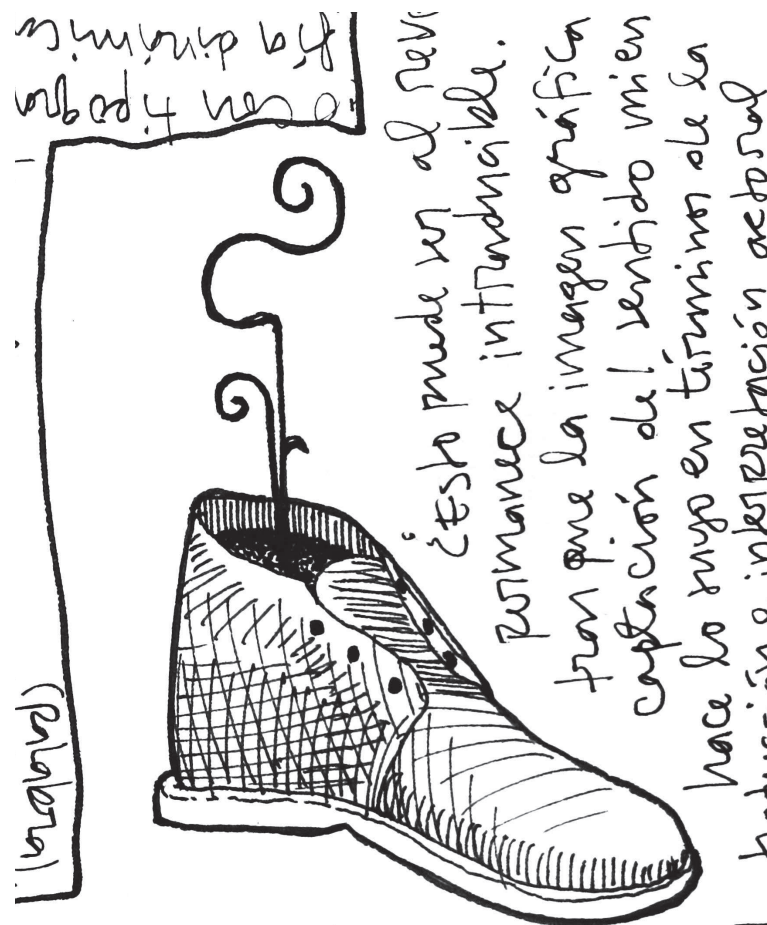 o con tipogra
fía dinámica
¿Esto puede ser al revé
permanece intraducible.
tras que la imagen gráfica
captación del sentido mien
hace lo suyo en términos de la
e interpretación actoral